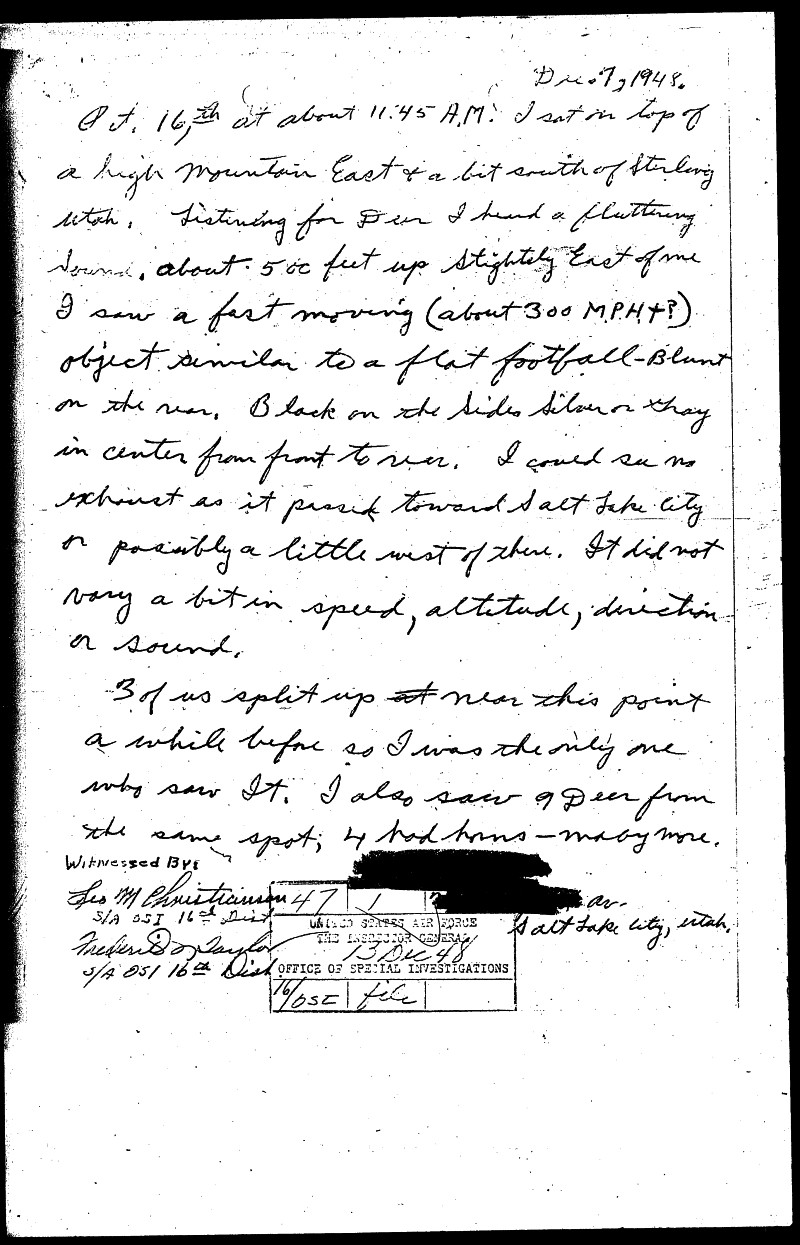 Dec. 7, 1948.
Oct. 16,th at about 11:45 A.M. I sat on top of
a high mountain East & a bit south of Sterling
Utah. Listening for Deer I heard a fluttering
sound, about 500 feet up slightely East of me
I saw a fast moving (about 300 M.P.H.+?)
object similar to a flat football-Blunt
on the rear. Black on the sides Silver or Gray
in center from front to rear. I could see no
exhaust as it passed toward Salt Lake City
or possibly a little west of there. It did not
vary a bit in speed, altitude, direction
or sound.
3 of us split up at near this point
a while before so I was the only one
who saw It. I also saw 9 Deer from
the same spot; 4 had horns - maby more.
Witnessed By:
Leo M Christiansen
S/A OSI 16th Dist
Taylor
S/A OSI 16th Dist
av.
Salt Lake City, Utah.
47 1
UNITED STATES AIR FORCE
THE INSPECTOR GENERAL
13 Dec 48
OFFICE OF SPECIAL INVESTIGATIONS
16/OSI file